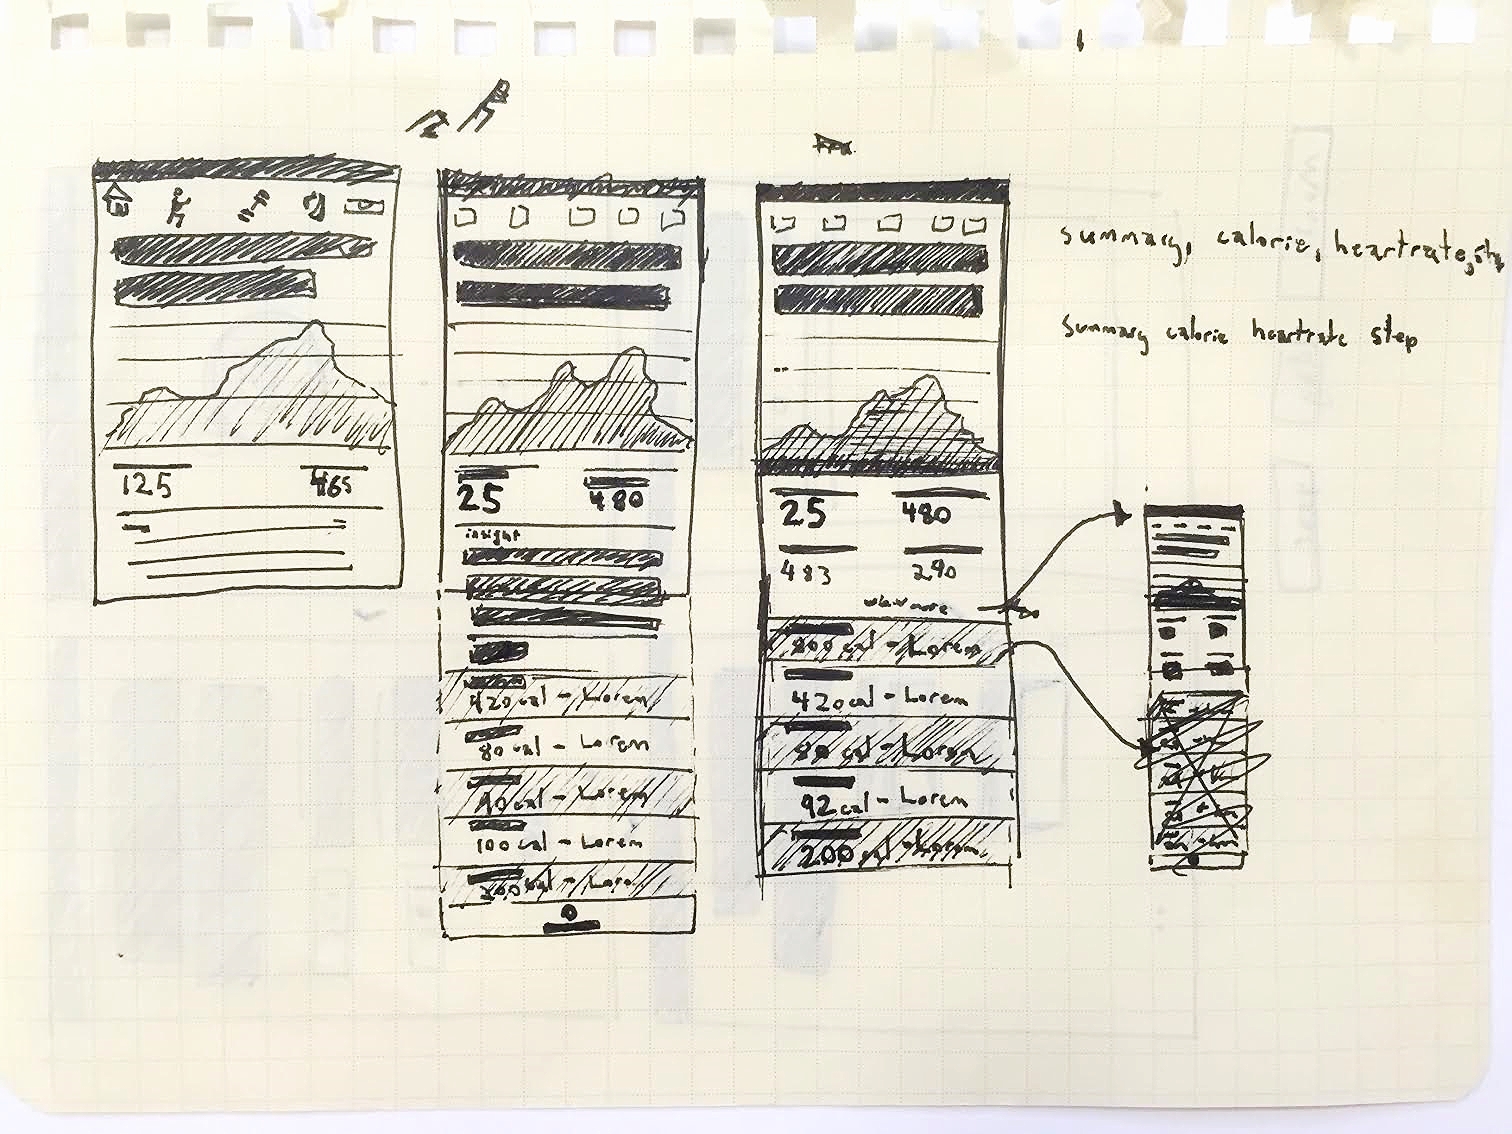 summary, calorie, heartrate, st
summary calorie heartrate step
125 465
25 480
insight
420 cal - Lorem
80 cal - Lorem
90 cal - Lorem
100 cal - Lorem
200 cal - Lore
25 480
483 290
view more
800 cal - Lorem
420 cal - Lorem
80 cal - Lorem
92 cal - Lorem
200 cal - Lorem